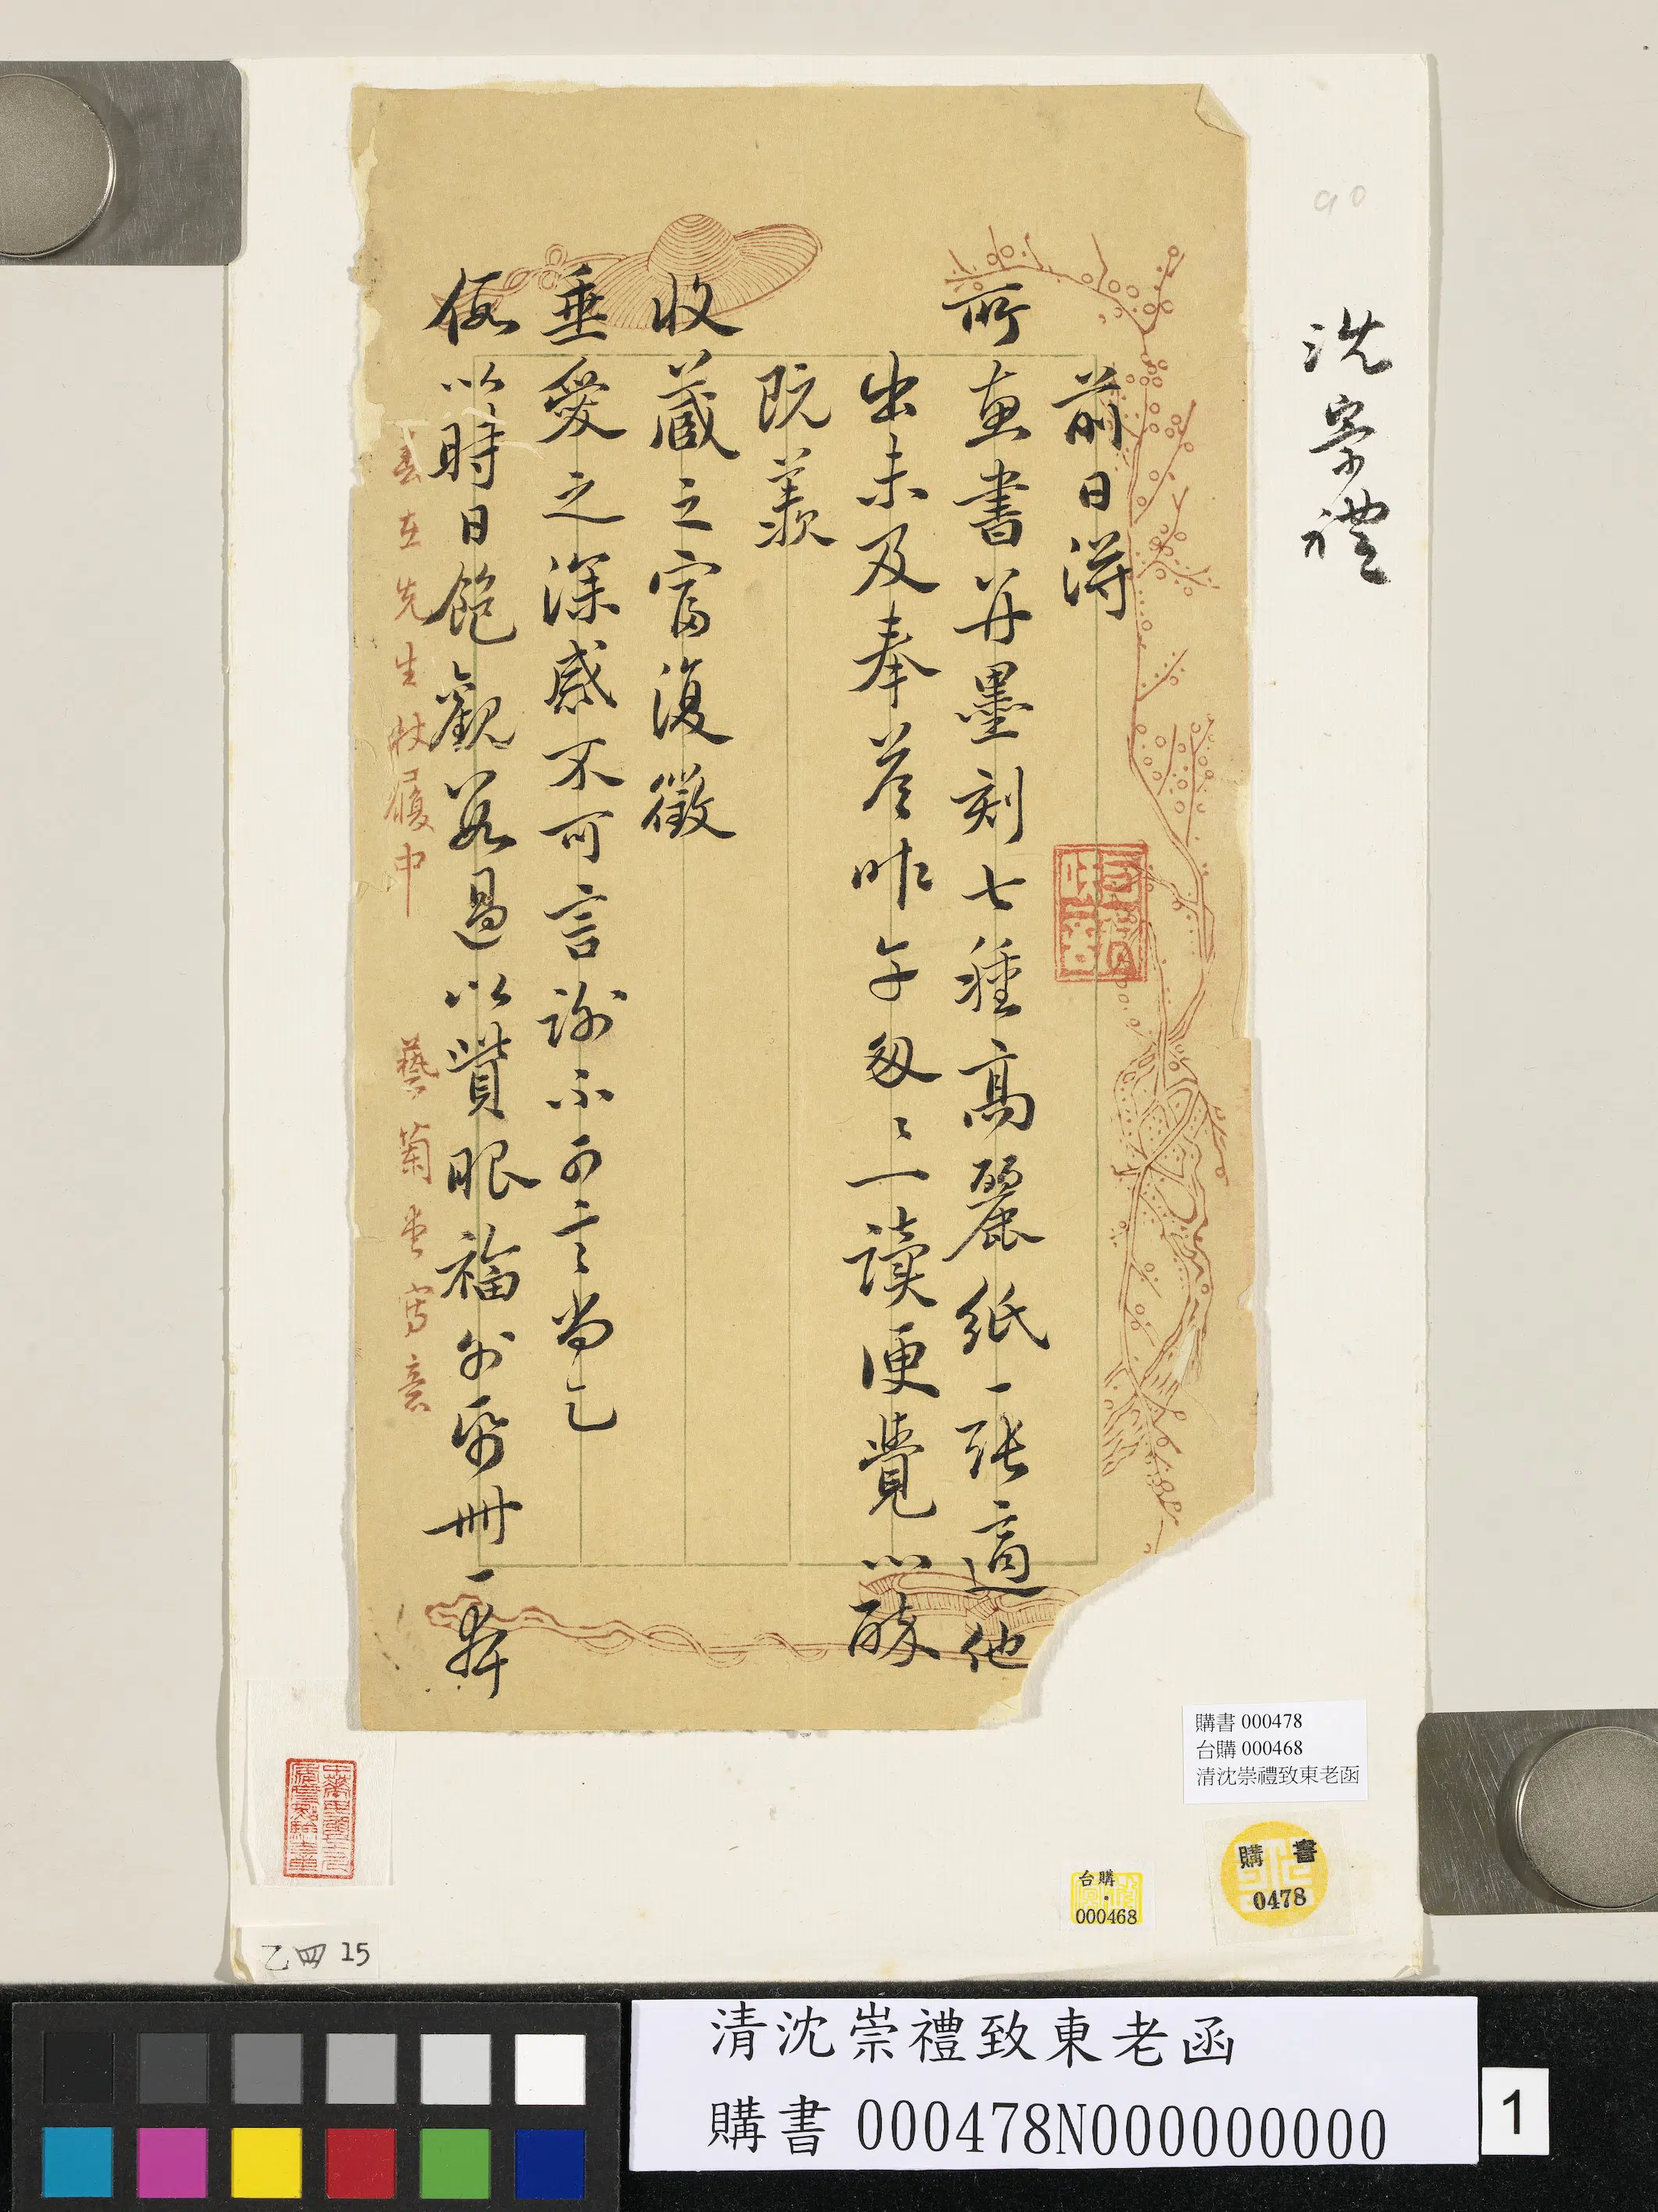 沈崇禮
90
前日得
所惠書并墨刻七種高麗紙一張適他
出未及奉答昨午匆匆一讀便覺心醉
既羨
收藏之富復徵
垂愛之深感不可言謝不可言尚乞
假以時日飽觀若過以賞眼福外帋冊一弆
春在先生杖履中
藝菊畫寫意
購書 000478
台購 000468
清沈崇禮致東老函
購書
0478
台購
000468
乙四 15
清沈崇禮致東老函
購書 000478N000000000
1